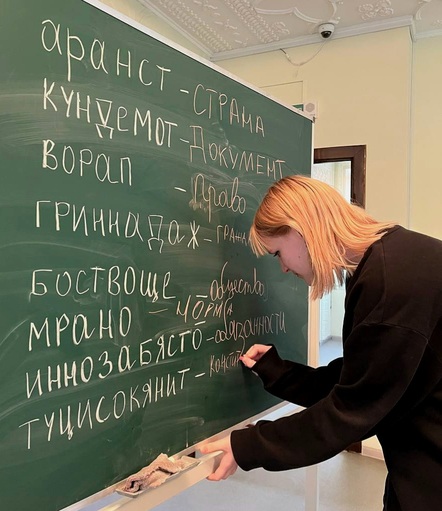 АРАНСТ - СТРАНА
КУНДЕМОТ - ДОКУМЕНТ
ВОРАП - Право
ГРИННАДАЖ - ГРАЖДА
БОСТВОЩЕ - общество
МРАНО - НОРМА
ИННОЗАБЯСТО - обязанности
ТУЦИСОКЯНИТ - Консти